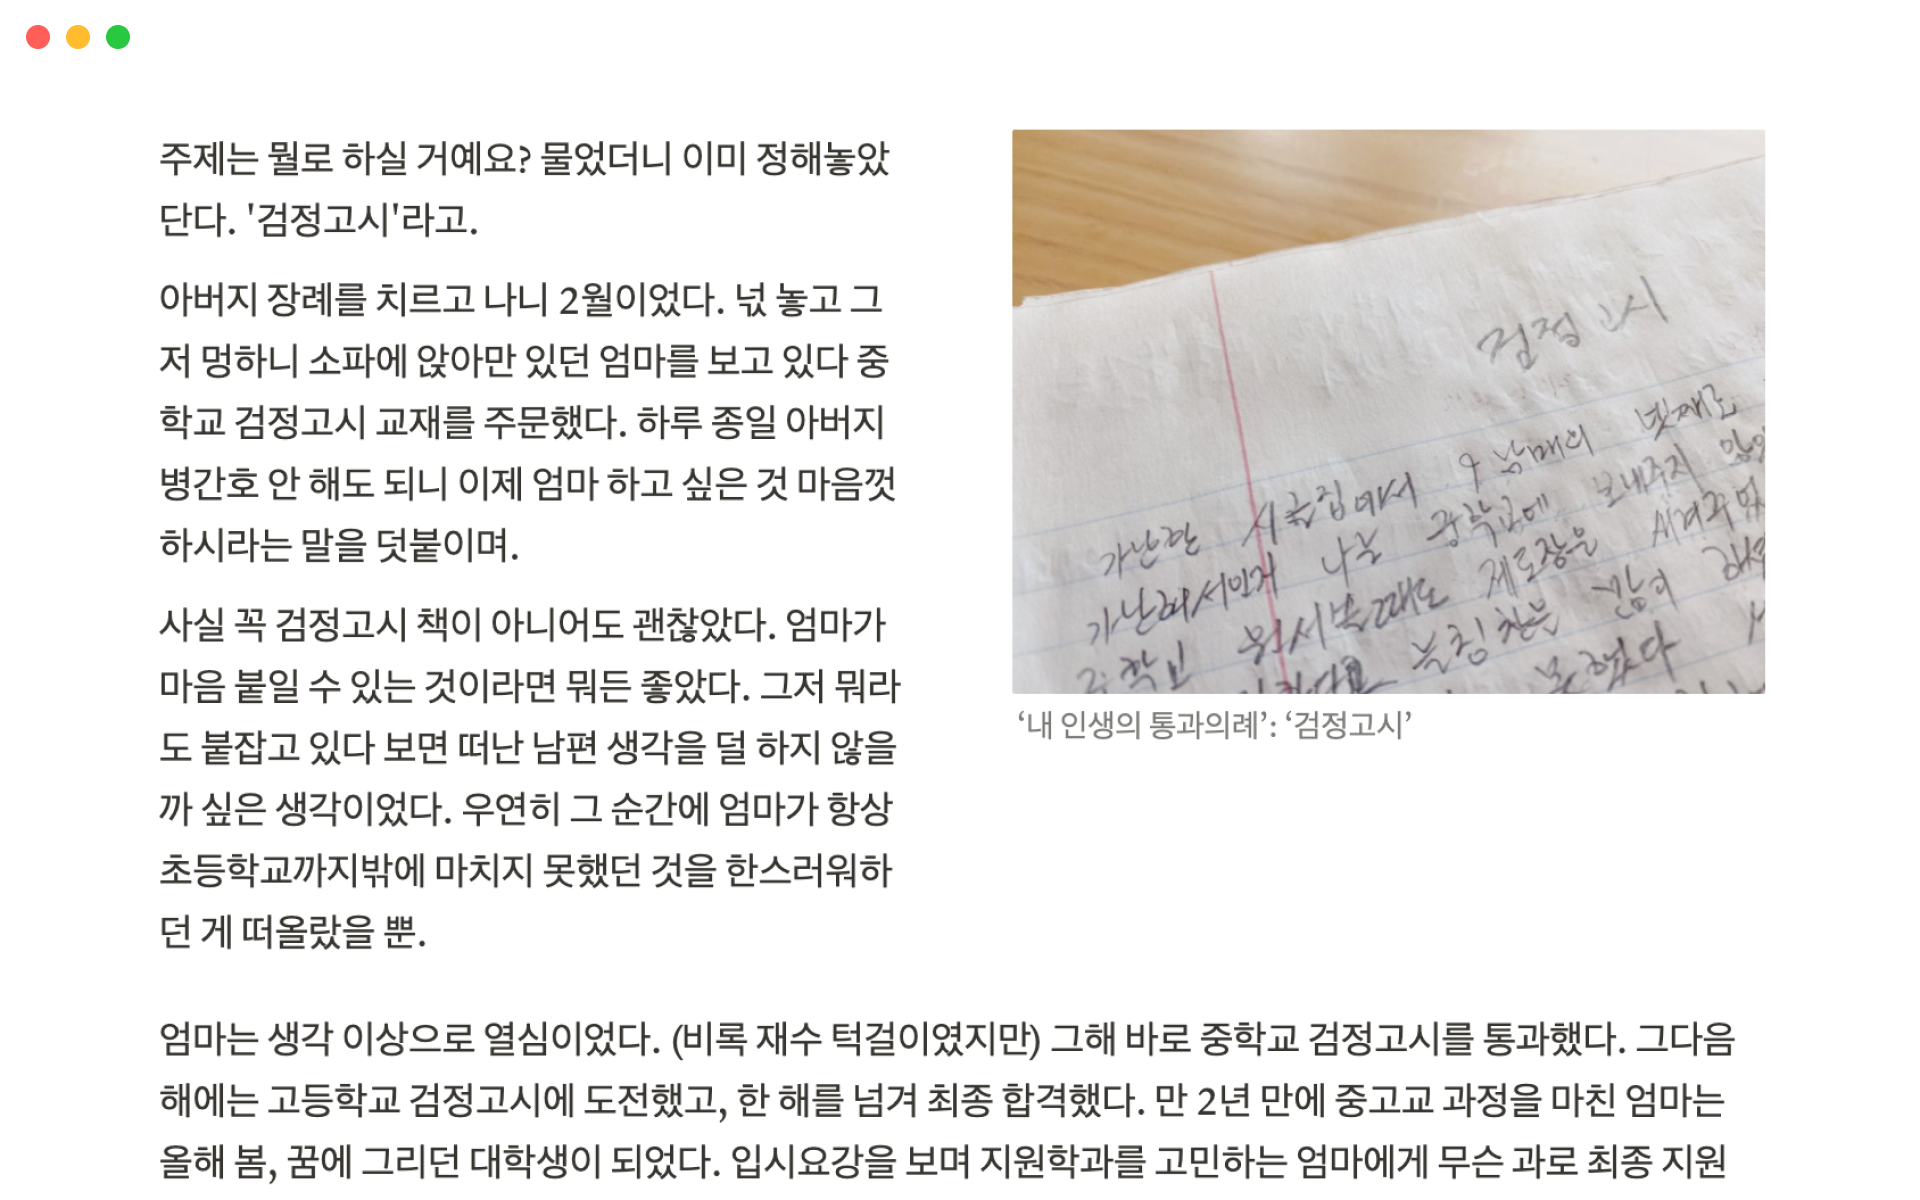 주제는 뭘로 하실 거예요? 물었더니 이미 정해놓았
단다. '검정고시'라고.
아버지 장례를 치르고 나니 2월이었다. 넋 놓고 그
저 멍하니 소파에 앉아만 있던 엄마를 보고 있다 중
학교 검정고시 교재를 주문했다. 하루 종일 아버지
병간호 안 해도 되니 이제 엄마 하고 싶은 것 마음껏
하시라는 말을 덧붙이며.
사실 꼭 검정고시 책이 아니어도 괜찮았다. 엄마가
마음 붙일 수 있는 것이라면 뭐든 좋았다. 그저 뭐라
도 붙잡고 있다 보면 떠난 남편 생각을 덜 하지 않을
까 싶은 생각이었다. 우연히 그 순간에 엄마가 항상
초등학교까지밖에 마치지 못했던 것을 한스러워하
던 게 떠올랐을 뿐.
검정고시
가난한 시골집에서 9남매의 넷째로
가난해서인지 나는 중학교에 보내주지 않았
중학교 원서 쓸때도 제도장은
못했다
‘내 인생의 통과의례’: ‘검정고시’
엄마는 생각 이상으로 열심이었다. (비록 재수 턱걸이였지만) 그해 바로 중학교 검정고시를 통과했다. 그다음
해에는 고등학교 검정고시에 도전했고, 한 해를 넘겨 최종 합격했다. 만 2년 만에 중고교 과정을 마친 엄마는
올해 봄, 꿈에 그리던 대학생이 되었다. 입시요강을 보며 지원학과를 고민하는 엄마에게 무슨 과로 최종 지원